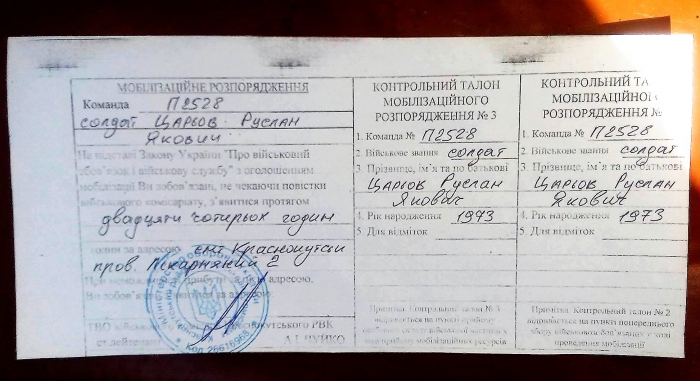 МОБІЛІЗАЦІЙНЕ РОЗПОРЯДЖЕННЯ
Команда П2528
солдат Царьов Руслан
Якович
На підставі Закону України "Про військовий
обов'язок і військову службу" з оголошенням
мобілізації Ви зобов'язані, не чекаючи повістки
військового комісаріату, з'явитися протягом
двадцяти чотирьох годин
годин за адресою смт Краснокутськ
пров. Пекарняний 2
При прибутті за цією адресою,
Ви за адресою
ТВО РВК
ст.лейтенант А.І. ЧУЙКО
КОНТРОЛЬНИЙ ТАЛОН
МОБІЛІЗАЦІЙНОГО
РОЗПОРЯДЖЕННЯ № 3
1. Команда № П2528
2. Військове звання солдат
3 Прізвище, ім'я та по батькові
Царьов Руслан
Якович
4. Рік народження 1973
5 Для відміток
Примітка Контрольний талон № 3
видається на пункті прийому
мобілізаційних ресурсів
КОНТРОЛЬНИЙ ТА
МОБІЛІЗАЦІЙНОГО
РОЗПОРЯДЖЕННЯ №
1. Команда № П2528
2. Військове звання солдат
3 Прізвище, ім'я та по батькові
Царьов Руслан
Якович
4. Рік народження 1973
5 Для відміток
Примітка Контрольний талон № 2
видається на пункті попереднього
збору військовозобов'язаних у разі
проведення мобілізації